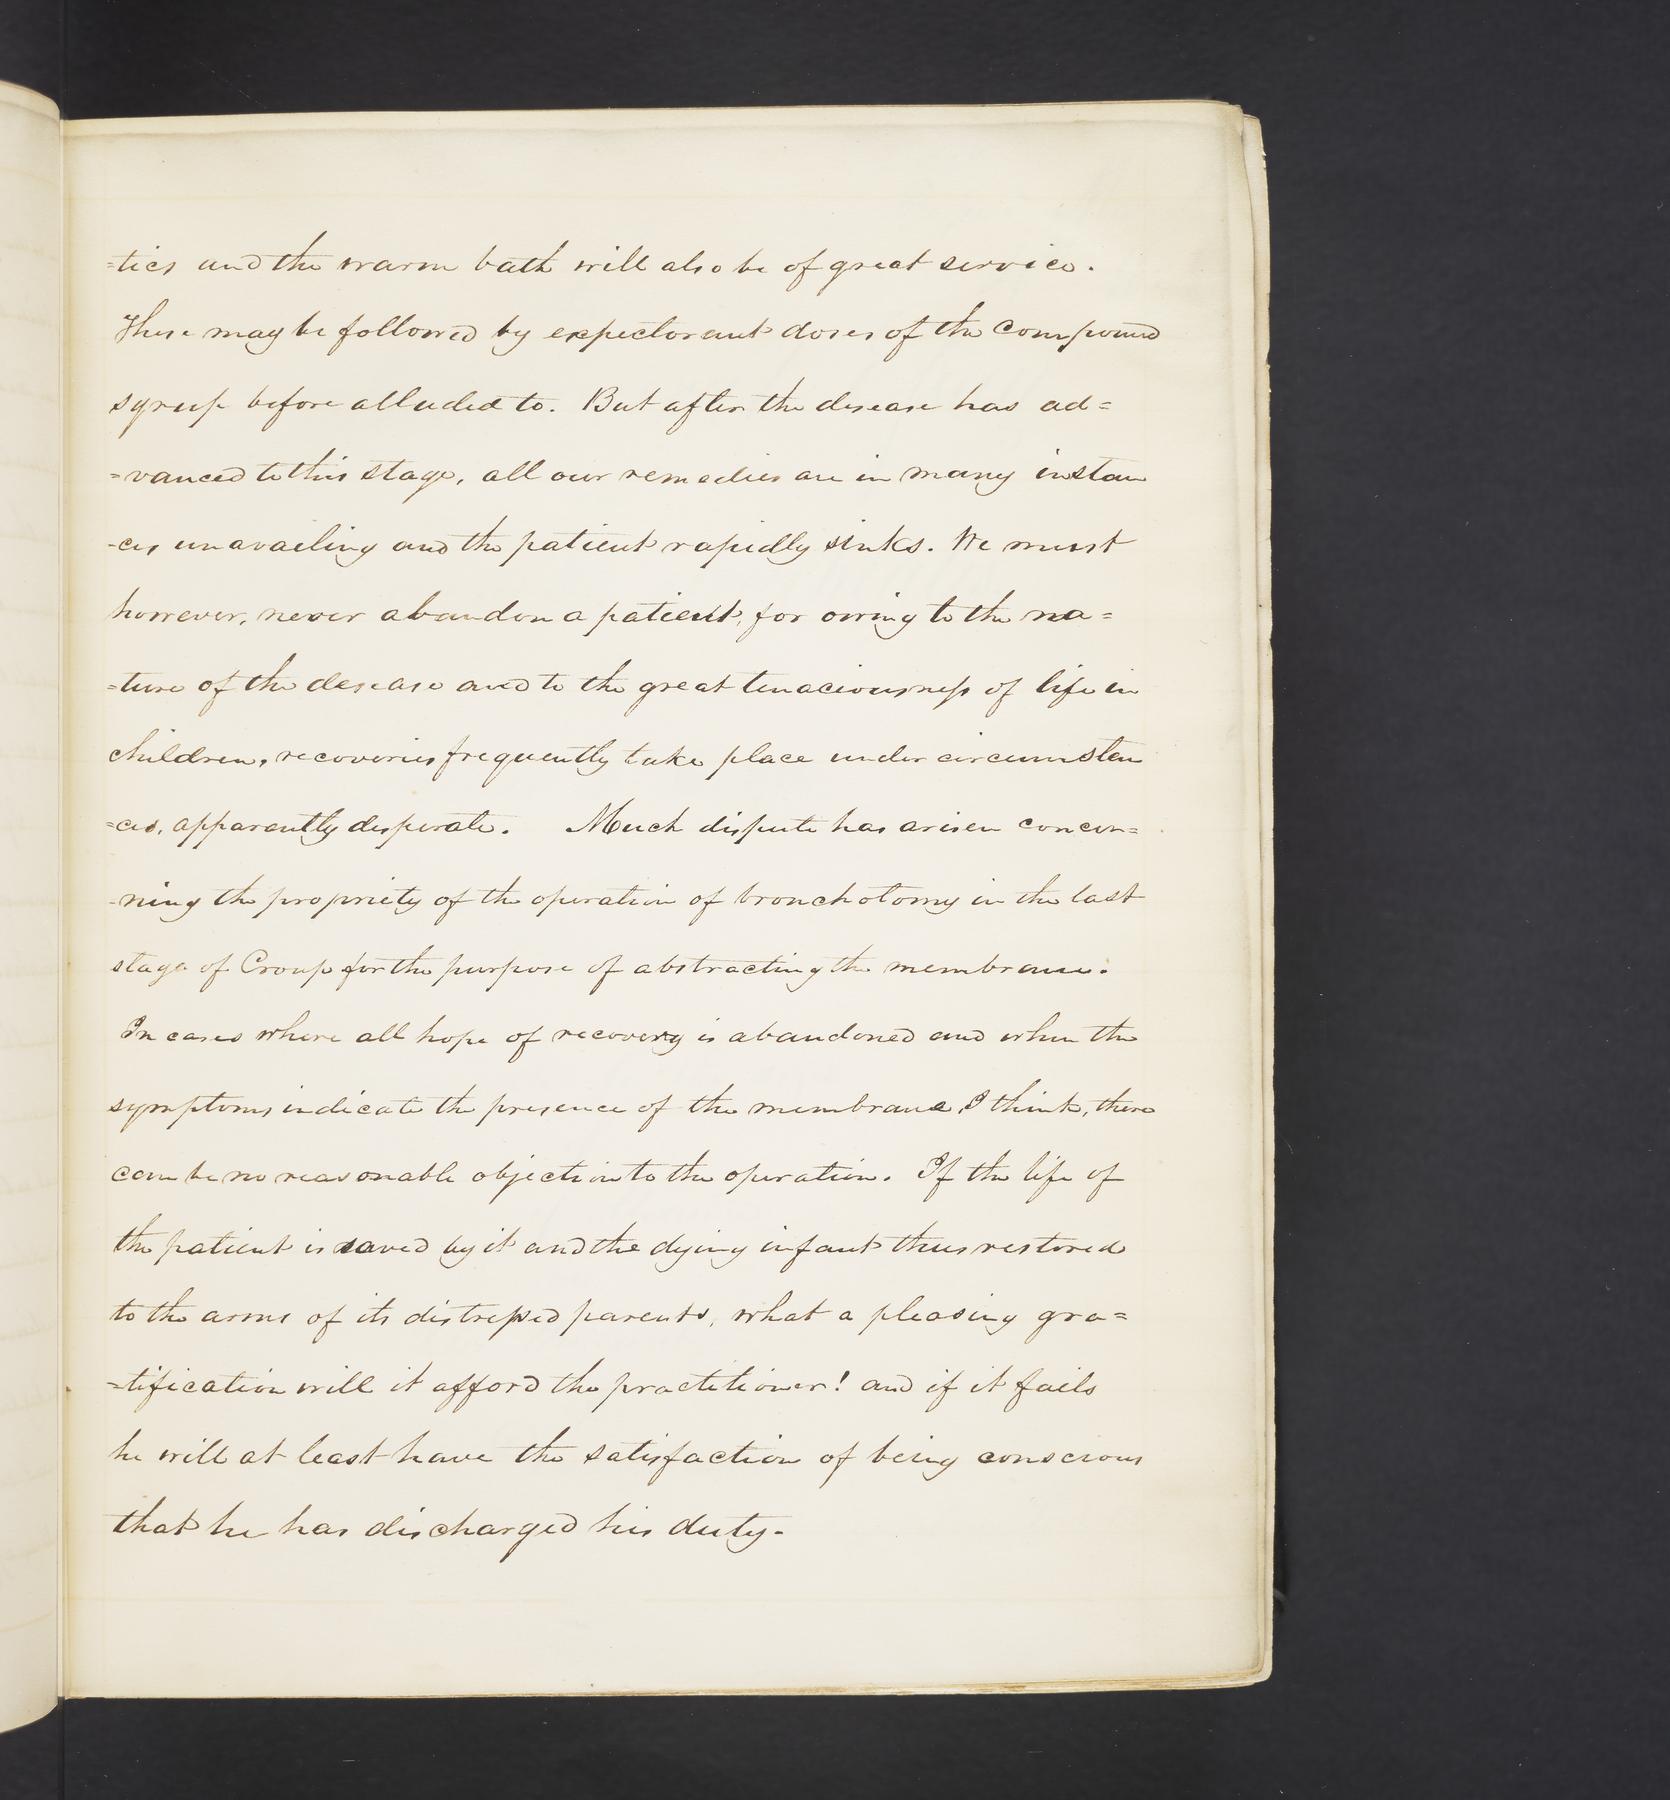 =tics and the warm bath will also be of great service.
These may be followed by expectorant doses of the compound
syrup before alluded to. But after the disease has ad=
=vanced to this stage, all our remedies are in many instan
-ces unavailing and the patient rapidly sinks. We must
however, never abandon a patient, for owing to the na=
=ture of the desease and to the great tenaciousness of life in
children, recoveries frequently take place under circumstan
=ces, apparently desperate. Much dispute has arisen concer=
-ning the propriety of the operation of bronchotomy in the last
stage of Croup for the purpose of abstracting the membrane.
In cases where all hope of recovery is abandoned and when the
symptoms indicate the presence of the membrane, I think, there
can be no reasonable objection to the operation. If the life of
the patient is saved by it and the dying infant thus restored
to the arms of its distressed parents, what a pleasing gra=
=tification will it afford the practitioner! and if it fails
he will at least have the satisfaction of being conscious
that he has discharged his duty-